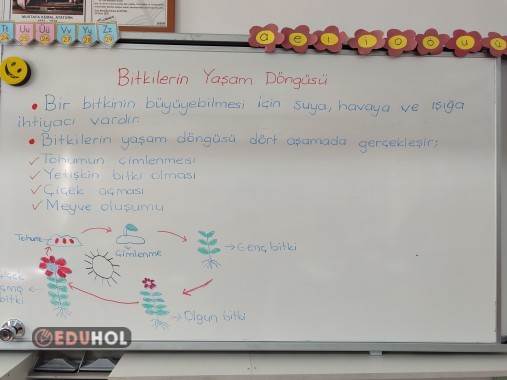 MUSTAFA KEMAL ATATÜRK
Tt Uu Üü Vv Yy Zz
24 25 26 27 28 29
a e ı i o ö u ü
Bitkilerin Yaşam Döngüsü
• Bir bitkinin büyüyebilmesi için suya, havaya ve ışığa
ihtiyacı vardır.
• Bitkilerin yaşam döngüsü dört aşamada gerçekleşir;
✓ Tohumun çimlenmesi
✓ Yetişkin bitki olması
✓ Çiçek açması
✓ Meyve oluşumu
Tohum
Çimlenme
Genç bitki
bitki
Olgun bitki
EDUHOL